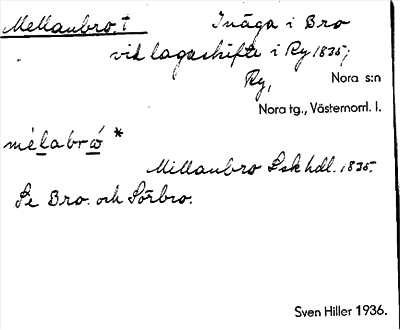 Mellanbro. † Inäga i Bro
vid lagaskifte i Ry 1835;
Ry, Nora s:n
Nora tg., Västernorrl. l.
mèlabró *
Millanbro Lskhdl. 1835.
Se Bro. och Sörbro.
Sven Hiller 1936.